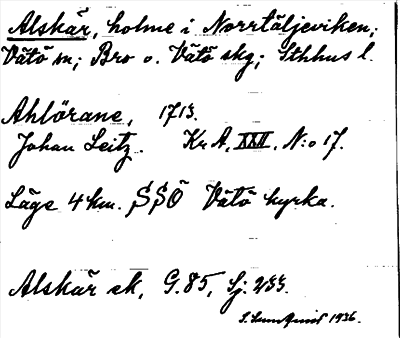 Alskär, holme i Norrtäljeviken;
Vätö sn; Bro o. Vätö skg; Sthlms l.
Ahlörane, 1713.
Johan Leitz. Kr A, XXVI, N:o 17.
Läge 4 km. SSÖ Vätö kyrka.
Alskär ek, G. 85, Sj. 233.
1936.